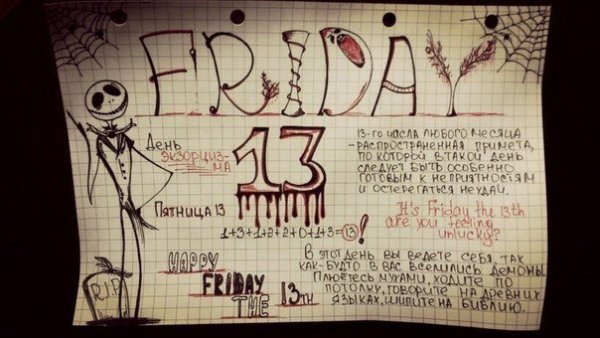 FRIDAY
День
экзорциз-
ма
13
13-го числа любого месяца
- распространенная примета,
по которой в такой день
следует быть особенно
готовым к неприятностям
и остерегаться неудач.
Пятница 13
1+3+1+2+2+0+1+3=13!
It's Friday the 13th
are you feeling
unlucky?
HAPPY
FRIDAY
THE 13TH
В этот день вы ведете себя, так
как-будто в вас вселились демоны.
Плюетесь мухами, ходите по
потолку, говорите на древних
языках, шипите на Библию.
R.I.P